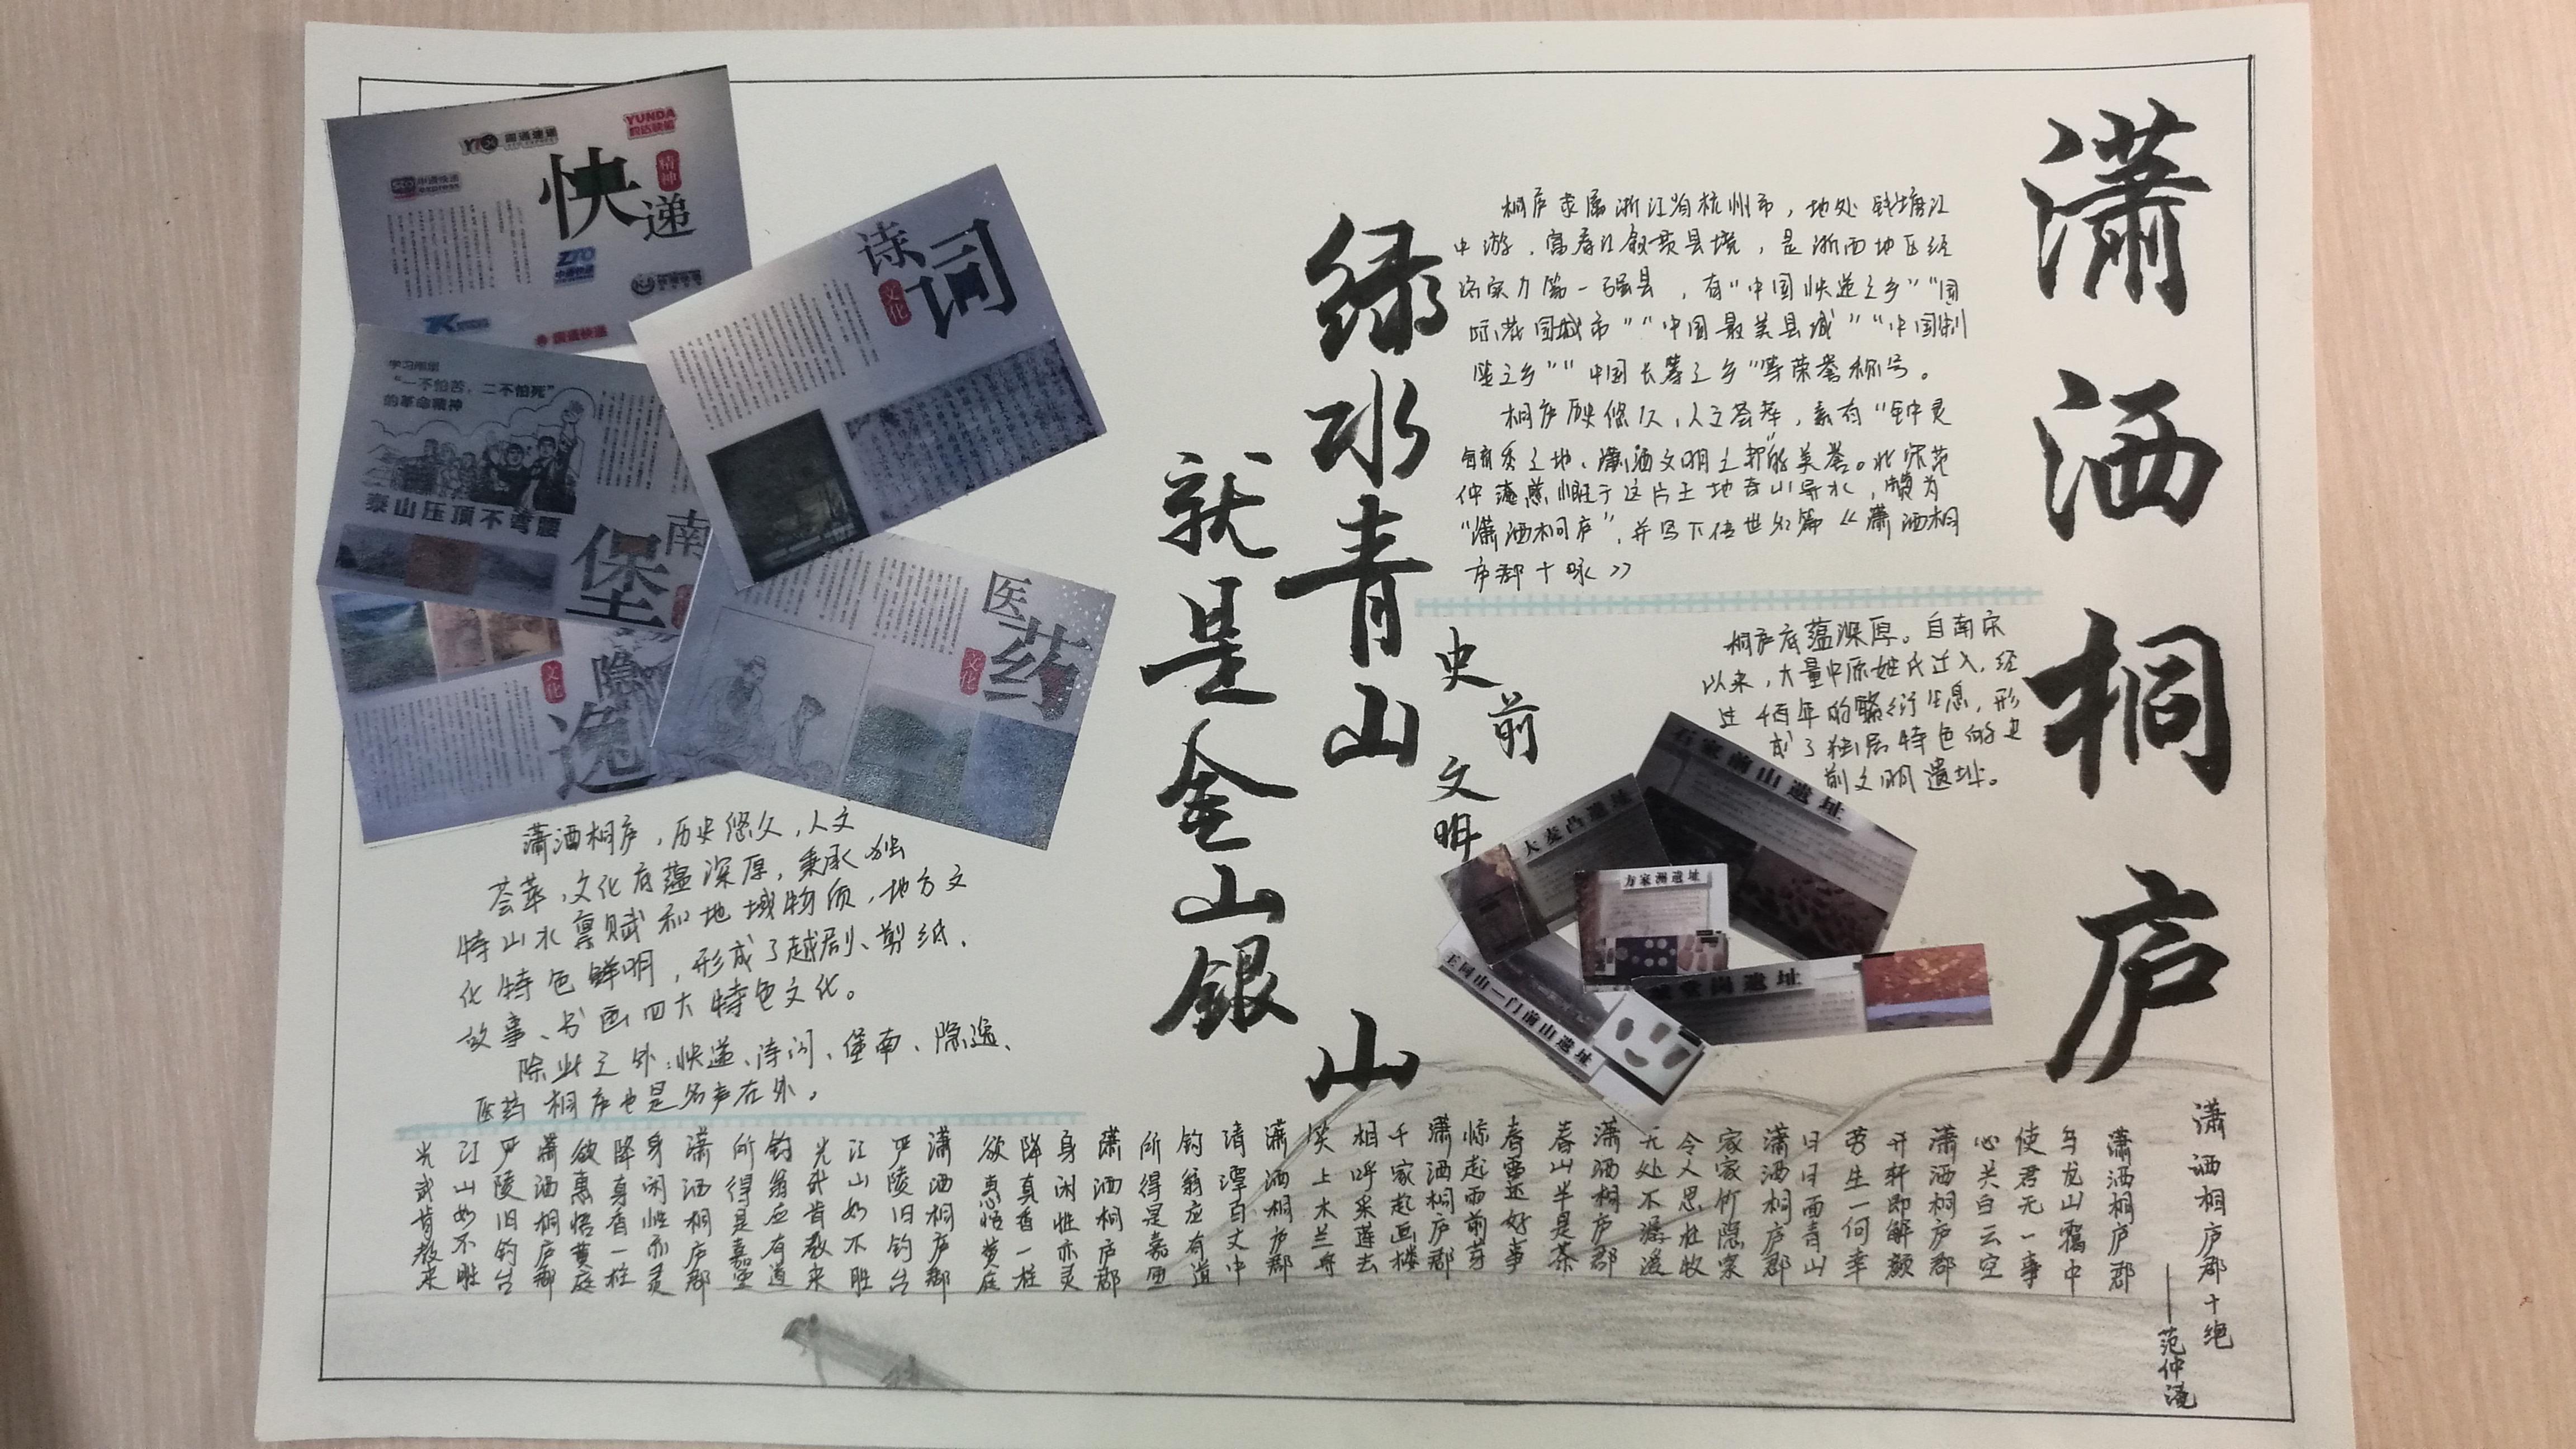 潇洒桐庐
桐庐隶属浙江省杭州市，地处钱塘江
中游，富春江斜贯县境，是浙西地区经
济实力第一强县，有“中国快递之乡”“国
际花园城市”“中国最美县城”“中国制
笔之乡”“中国长寿之乡”等荣誉称号。
桐庐历史悠久，人文荟萃，素有“钟灵
毓秀之地、潇洒文明之邦”的美誉。北宋范
仲淹感慨于这片土地奇山异水，赞为
“潇洒桐庐”，并写下传世名篇《潇洒桐
庐郡十咏》
桐庐底蕴深厚。自南宋
以来，大量中原姓氏迁入，经
过千百年的繁衍生息，形
成了独居特色的史
前文明遗址。
史前文明
石家前山遗址
大麦凸遗址
方家洲遗址
绿水青山
就是金山银
山
YTO 圆通速递
YUNDA
韵达快运
STO 申通快递
express
快递
精神
ZTO
中通快递
国通快递
诗词
文化
学习雨里
“一不怕苦，二不怕死”
的革命精神
泰山压顶不弯腰
堡南
隐逸
文化
医药
文化
潇洒桐庐，历史悠久，人文
荟萃，文化底蕴深厚，秉承独
特山水禀赋和地域物质，地方文
化特色鲜明，形成了越剧、剪纸、
故事、书画四大特色文化。
除此之外：快递、诗词、堡南、隐逸、
医药桐庐也是名声在外。
潇洒桐庐郡十绝
——范仲淹
潇洒桐庐郡
乌龙山霭中
使君无一事
心共白云空
潇洒桐庐郡
开轩即解颜
劳生一何幸
日日面青山
潇洒桐庐郡
家家竹隐泉
令人思杜牧
无处不潺湲
潇洒桐庐郡
春山半是茶
春雷还好事
惊起雨前芽
潇洒桐庐郡
千家起画楼
相呼采莲去
笑上木兰舟
潇洒桐庐郡
清潭百丈中
钓翁应有道
所得是嘉鱼
潇洒桐庐郡
身闲性亦灵
降真香一柱
欲惠悟黄庭
潇洒桐庐郡
严陵旧钓台
江山如不胜
光武肯教来
钓翁应有道
所得是嘉鱼
潇洒桐庐郡
身闲性亦灵
降真香一柱
欲惠悟黄庭
潇洒桐庐郡
严陵旧钓台
江山如不胜
光武肯教来